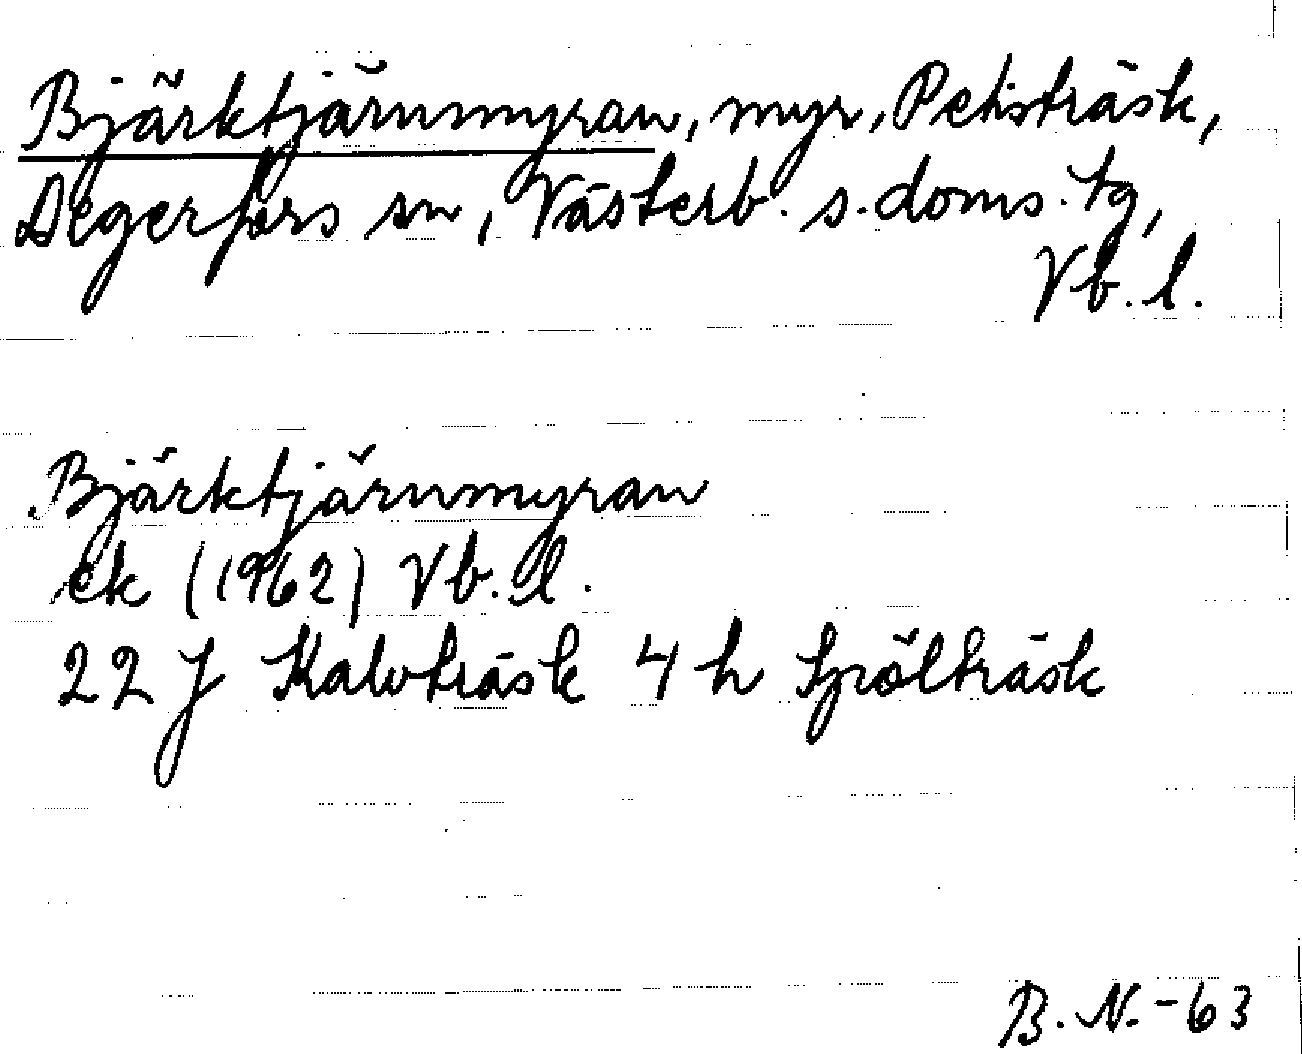 Bjärktjärnmyran, myr, Pehsträsk,
Degerfors sn, Västerb. s. doms. tg,
Vb. l.
Bjärktjärnmyran
ek (1962) Vb. l.
22 J Kalvträsk 4 h
B. N. -63